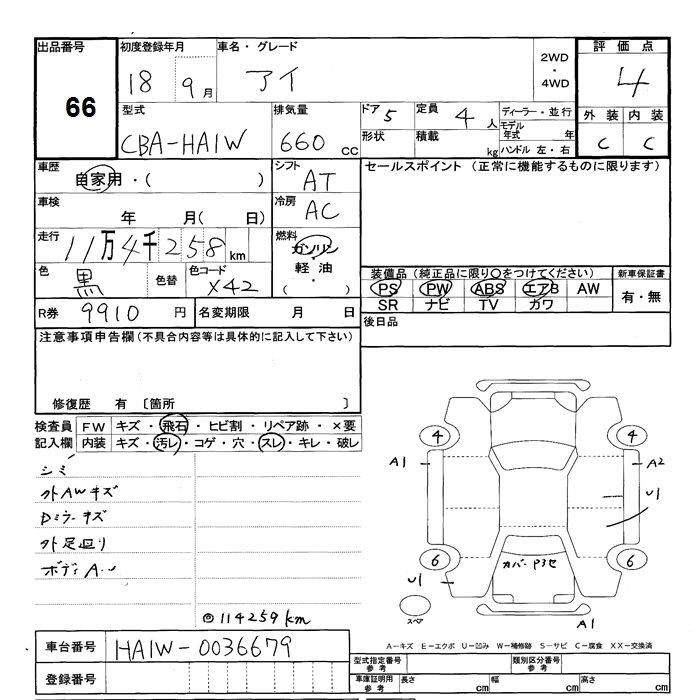 出品番号 初度登録年月 車名・グレード 2WD・4WD 評価点
66 18 9月 アイ 4
型式 排気量 ドア 5 定員 4人 ディーラー・並行 外装 内装
CBA-HA1W 660cc 形状 積載 kg モデル年式 年 C C
ハンドル 左・右
車歴 自家用・( ) シフト AT セールスポイント (正常に機能するものに限ります)
車検 年 月( 日) 冷房 AC
走行 11万4千258km 燃料 ガソリン
軽油・
( )
色 黒 色替 色コード X42 装備品(純正品に限り○をつけてください) 新車保証書
PS PW ABS エアB AW 有・無
SR ナビ TV カワ
R券 9910円 名変期限 月 日 後日品
注意事項申告欄(不具合内容等は具体的に記入して下さい)
修復歴 有 〔箇所 〕
検査員 FW キズ・飛石・ヒビ割・リペア跡・×要
記入欄 内装 キズ・汚レ・コゲ・穴・スレ・キレ・破レ
シミ
外AWキズ
Dミラーキズ
外足廻り
ボディA・U
◎114259km
4 4
A1 A2
U1
6 6
カバーP3セ
U1
スペア
A1
車台番号 HA1W-0036679
A−キズ E−エクボ U−凹み W−補修跡 S−サビ C−腐食 XX−交換済
登録番号
型式指定番号参考 類別区分番号参考
車庫証明用参考 長さ cm 幅 cm 高さ cm